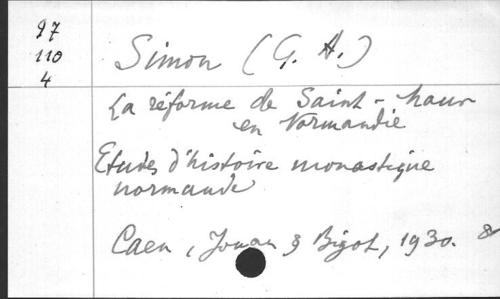 97
110
4
Simon (G. A.)
La réforme de Saint-Maur
en Normandie
Etudes d'histoire monastique
normande
Caen, Jouan & Bigot, 1930. 8